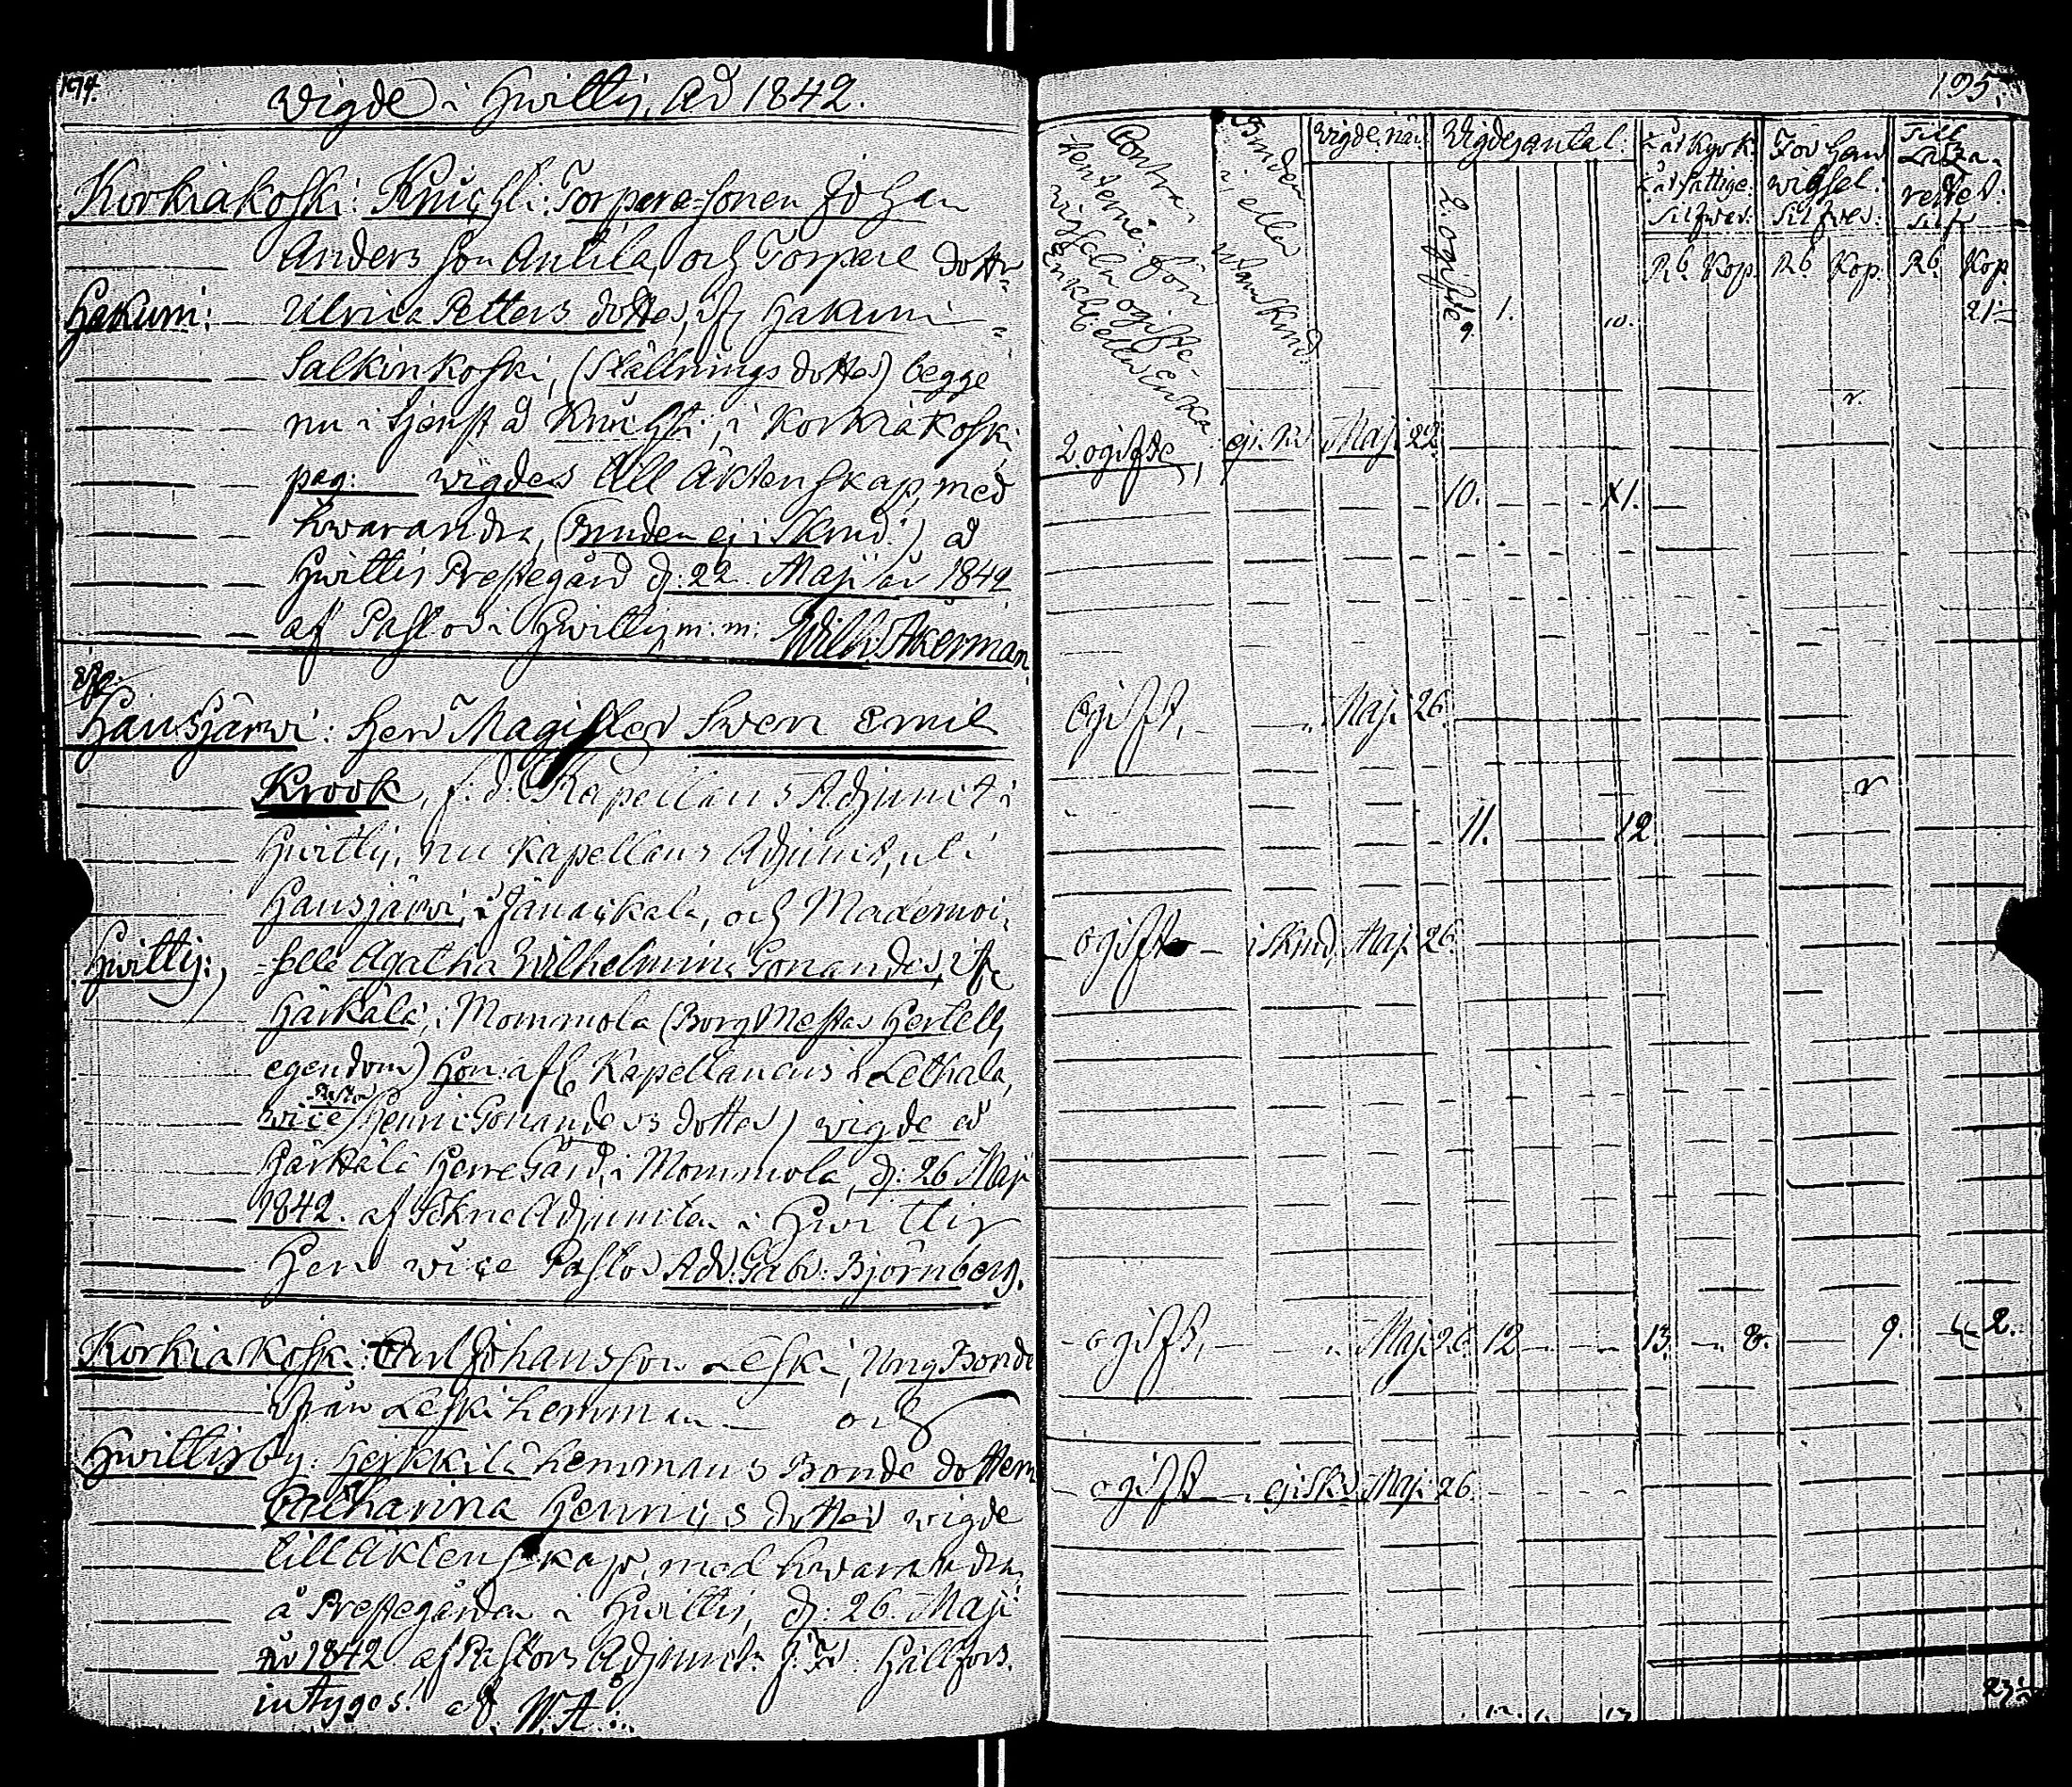 194.
Wigde i Hwittis, År 1842.
Korkiakoski: Knuchti: Torpare-sonen Johan
Anders son Antila, och Torpare dottr
Hakuni: Ulrica Petters dotter, ifr Hakuni
Salkinkoski, (Ställnings dotter) begge
nu i tjenst å Knuchti, i Korkiakoski
pag: wigdes till Äktenskap, med
hwarandra, (Bruden ej i Skrud:) å
Hwittis Prestegård d: 22 Maji år 1842
af Pastor i Hwittis m: m: Wilh: Åkerman
Hausjärwi: Herr Magister Swen Emil
Krook, f: d: Kapellans Adjunct i
Hwittis, nu Kapellans Adjunct, uti
Hausjärwi, i Janackala, och Mademoi-
Hwittis: -selle Agatha Wilhelmina Gonander, ifr
Härkälä, i Mommola (BorgMestar Hertells
egendom) Hon: afl Kapellanens i Lethala,
Pastor
wice Henric Gonanders dotter) wigde å
Härkälä HerreGård, i Mommola, d: 26 Maji
1842. af SokneAdjuncten i Hwittis
Herr wice Pastor Ad: Gabr: Björnberg.
Korkiakoski: Carl Johansson Leski, Ung Bonde
ifrån Leski hemman och
Hwittisby: Heikkilä hemmans Bonde dottern
Catharina Henrics dotter wigde
till Äktenskap, med hwarandra,
å Prestegården i Hwittis, d: 26. Maji
år 1842 af Pastors Adjunct: J: Fr: Hällfors.
intygas: af W: Å:
195.
Contra-
henterne: för
wigseln ogifte
Enkl: eller Enka
Bruden
i, eller
utan Skrud
Wigde, när:
Wigdes antal:
2. ogifte
Till
Laza-
rettet:
Silf
För hem
wigsel:
Silfwer:
fattige:
Silfwer:
Rb. Kop. Rb Kop. Rb. Kop.
9. 1. 10. 21
2. ogifte, Maji 22
10. 11.
Ogift, Maji 26.
11. 12.
ogift i Skrud, Maji 26
ogift, Maji 26 12 13. 8. 9. 2.
ogift ej i Skr: Maji 26.